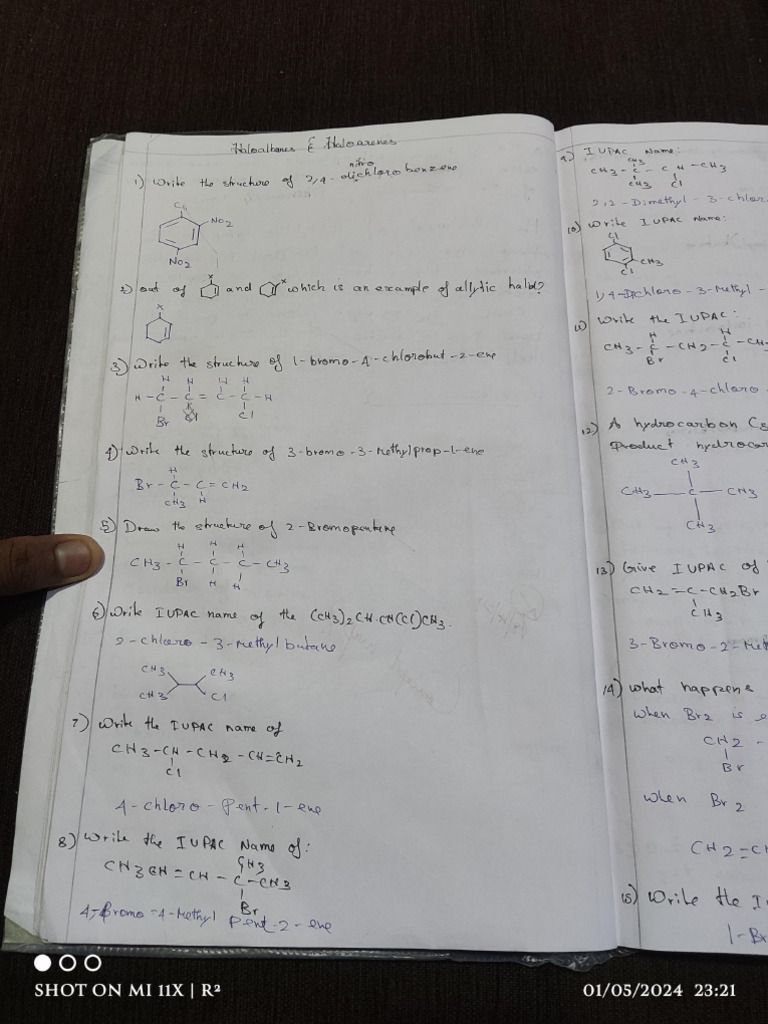 Haloalkanes & Haloarenes
nitro
1) Write the structure of 2,4-dichlorobenzene
Cl
NO2
NO2
2) out of and which is an example of allylic halid?
X
X
X
3) Write the structure of 1-bromo-4-chlorobut-2-ene
H H H H
H - C - C = C - C - H
Br Cl
4) Write the structure of 3-bromo-3-Methylprop-1-ene
H
Br - C - C = CH2
CH3 H
5) Draw the structure of 2-Bromopentane
H H H
CH3 - C - C - C - CH3
Br H H
6) Write IUPAC name of the (CH3)2CH.CH(Cl)CH3.
2-chloro-3-Methylbutane
CH3 CH3
CH3 Cl
7) Write the IUPAC name of
CH3-CH-CH2-CH=CH2
Cl
4-chloro-Pent-1-ene
8) Write the IUPAC Name of:
CH3
CH3CH=CH-C-CH3
Br
4-Bromo-4-Methyl Pent-2-ene
9) IUPAC Name:
CH3
CH3-C-CH-CH3
CH3 Cl
2,2-Dimethyl-3-chlor
10) Write IUPAC Name:
Cl
CH3
Cl
1,4-Dichloro-3-Methyl-
11) Write the IUPAC:
H H
CH3-C-CH2-C-CH
Br Cl
2-Bromo-4-chloro
12) A hydrocarbon C5
Product hydrocar
CH3
CH3 C CH3
CH3
13) Give IUPAC of
CH2=C-CH2Br
CH3
3-Bromo-2-Met
14) what happens
when Br2 is e
CH2 -
Br
when Br2
CH2=C
15) Write the I
1-Br
SHOT ON MI 11X | R²
01/05/2024 23:21